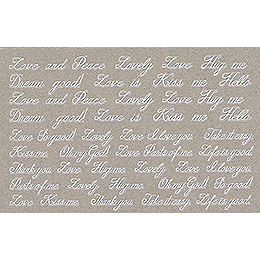 Love and Peace Lovely Love Hug me
Dream good! Love is Kiss me Hello
Love and Peace Lovely Love Hug me
Dream good! Love is Kiss me Hello
Love Be good! Lovely Love I love you. Take it easy.
Kiss me. Oh my God! Love Parts of me. Life is good.
Thank you. Love Hug me. Lovely Love I love you.
Parts of me. Lovely Hug me. Oh my God! Be good!
Love Kiss me. Thank you. Take it easy. Life is good.